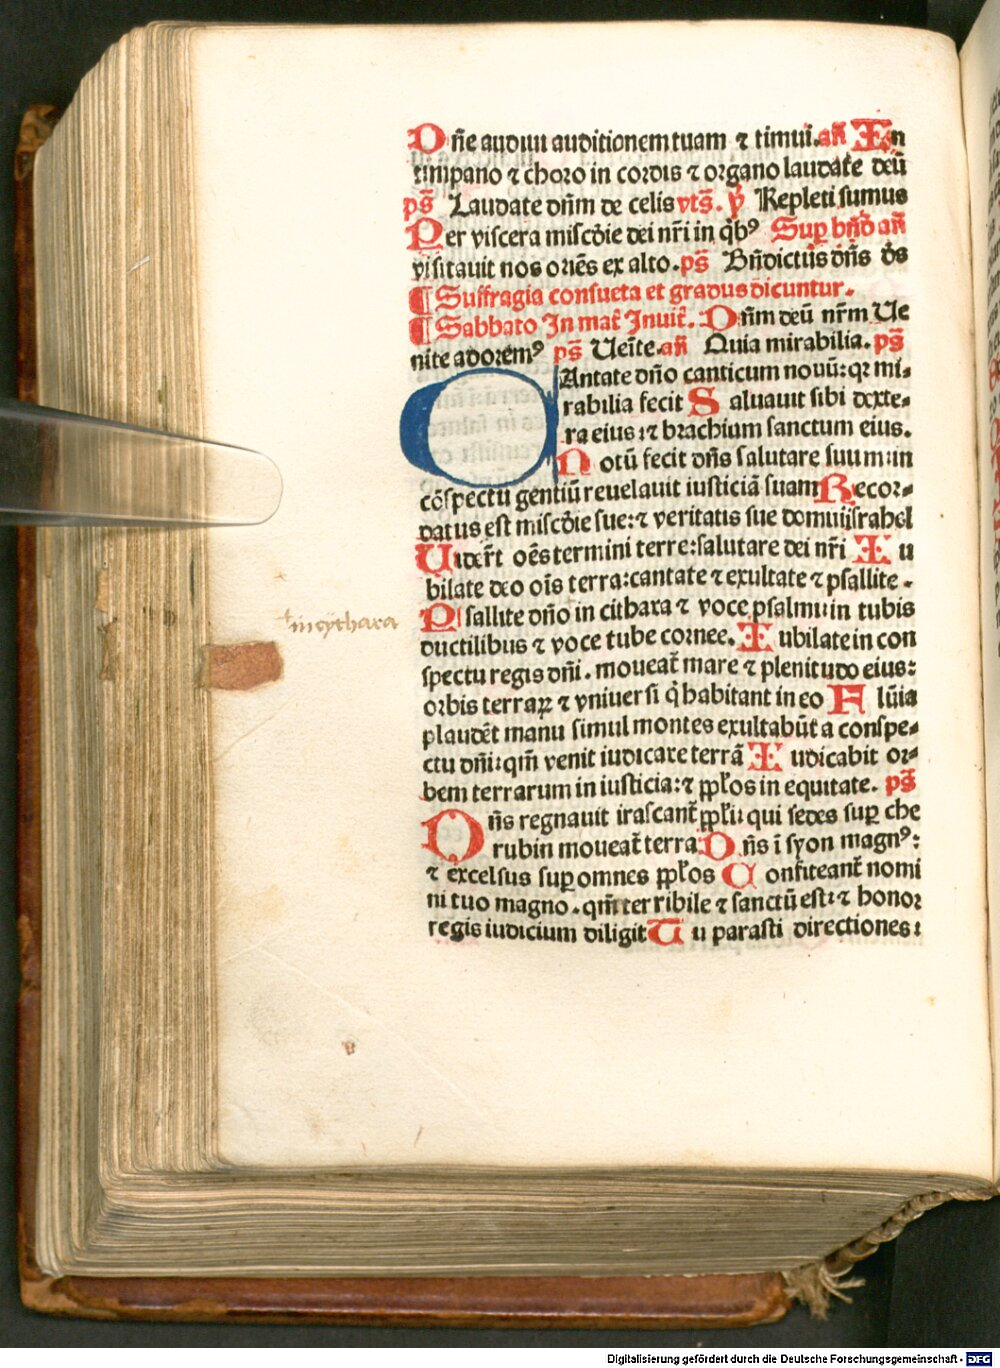 Dñe audiui auditionem tuam ⁊ timui. añ In
timpano ⁊ choro in cordis ⁊ organo laudate deū
ps̄ Laudate dn̄m de celis vts̄. ℣ Repleti sumus
Per viscera miscd̄ie dei nr̄i in qb⁹ Sup bn̄d añ
visitauit nos oriēs ex alto. ps̄ Bn̄dictus dn̄s ds̄
¶ Suffragia consueta et gradus dicuntur.
¶ Sabbato In mat̄ Inuit̄. Dn̄m deū nr̄m Ue
nite adorem⁹ ps̄ Uenīte. añ Quia mirabilia. ps̄
CAntate dn̄o canticum nouū: qꝛ mi-
rabilia fecit Saluauit sibi dexte-
ra eius: ⁊ brachium sanctum eius.
Notū fecit dn̄s salutare suum: in
cōspectu gentiū reuelauit iusticiā suam Recor-
datus est miscd̄ie sue: ⁊ veritatis sue domui israhel
Uider̄t oēs termini terre: salutare dei nr̄i Iu
bilate deo oīs terra: cantate ⁊ exultate ⁊ psallite.
Psallite dn̄o in cithara ⁊ voce psalmi: in tubis
ductilibus ⁊ voce tube cornee. Iubilate in con
spectu regis dn̄i. moueat̄ mare ⁊ plenitudo eius:
orbis terraꝝ ⁊ vniuersi q̇ habitant in eo Flūia
plaudēt manu simul montes exultabūt a conspe-
ctu dn̄i: qm̄ venit iudicare terrā Iudicabit or-
bem terrarum in iusticia: ⁊ ppl̄os in equitate. ps̄
Dn̄s regnauit irascant̄ ppl̄i: qui sedes sup che
rubin moueat̄ terra: Dn̄s ī syon magn⁹:
⁊ excelsus sup omnes ppl̄os Confiteant̄ nomi
ni tuo magno. qm̄ terribile ⁊ sanctū est: ⁊ honor
regis iudicium diligit Tu parasti directiones:
in cythara
Digitalisierung gefördert durch die Deutsche Forschungsgemeinschaft - DFG